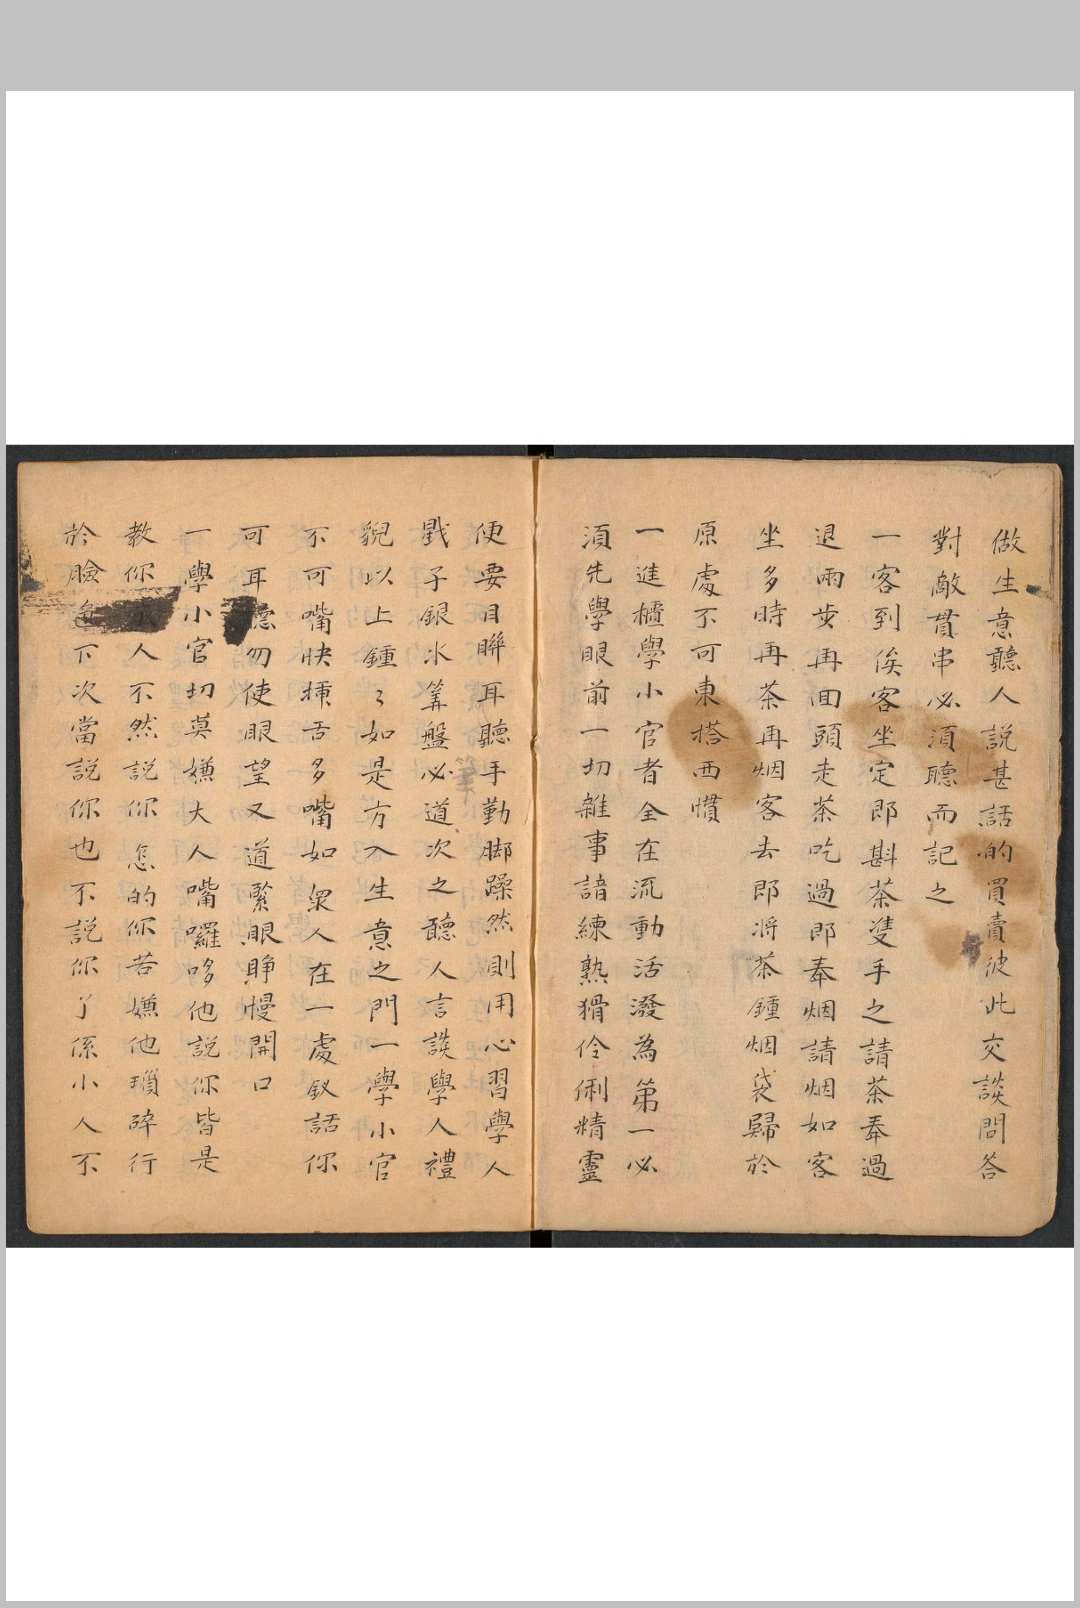 做生意聽人説甚話的買賣彼此交談問答
對敵貫串必須聽而記之
一客到俟客坐定即斟茶雙手之請茶奉過
退兩步再回頭走茶吃過即奉烟請烟如客
坐多時再茶再烟客去即將茶鍾烟袋歸於
原處不可東搭西慣
一進櫃學小官者全在流動活潑為第一必
須先學眼前一切雜事諳練熟猾伶俐精靈
便要目聨耳聽手勤脚躁然則用心習學人
戥子銀水筭盤必道次之聽人言談學人禮
貌以上鍾〻如是方入生意之門一學小官
不可嘴快揷舌多嘴如眾人在一處敘話你
可耳聽勿使眼望又道緊眼睁慢開口
一學小官切莫嫌大人嘴囉哆他説你皆是
教你人不然説你怎的你若嫌他瑣碎行
於臉色下次當説你也不説你了係小人不